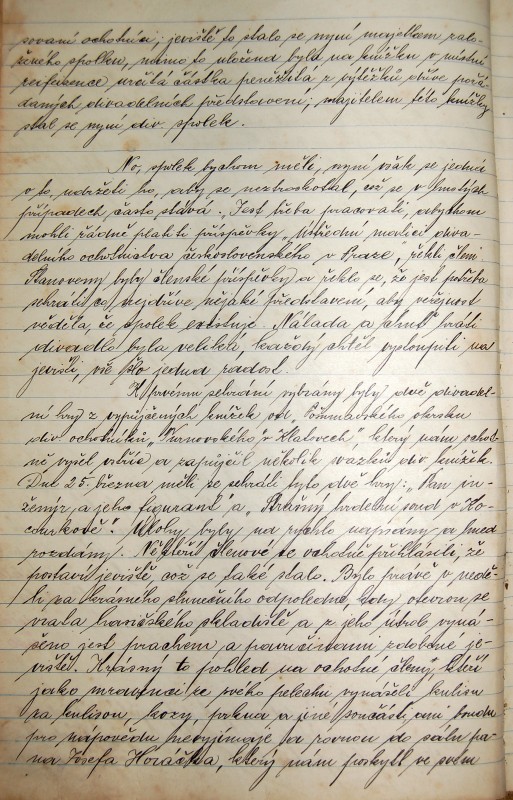 sovaní ochotníci; jeviště to stalo se nyní majetkem zalo-
ženého spolku, mimo to uložena byla na knížku v místní
reifaisence určitá částka peněžitá z výtěžků dříve pořá-
daných divadelních představení; majitelem této knížky
stal se nyní div. spolek.
No, spolek bychom měli, nyní však se jedná
o to, udržeti ho, aby se neztroskotal, což se v mnohých
případech často stává. Jest třeba pracovati, abychom
mohli řádně platiti příspěvky „Ústřední matici diva-
delního ochotnictva československého v Praze", řekli členi.
Stanoveny byly členské příspěvky a řeklo se, že jest potřeba
sehráti co nejdříve nějaké představení, aby veřejnost
věděla, že spolek existuje. Nálada a chuť hráti
divadlo byla veliká, každý chtěl vystoupiti na
jeviště, vše šlo jedna radost.
K prvému sehrání vybrány byly dvě divadel-
ní hry z vypůjčených knížek od Pošumavského okrsku
div. ochotníků „Vrnovského" v Klatovech, který nám ochot-
ně vyšel vstříc a zapůjčil několik svazků div. knížek.
Dne 25. března měli se sehráti tyto dvě hry: „Pan in-
ženýr a jeho figurant" a „Strašný hrdelní soud v Ko-
courkově". Úlohy byly na rychlo napsány a hned
rozdány. Někteří členové se ochotně přihlásili, že
postaví jeviště, což se také stalo. Bylo právě v nedě-
li za krásného slunečního odpoledne, kdy otevřou se
vrata hasičského skladiště a z jeho útrob vyná-
šeno jest prachem a pavučinami zdobené je-
viště. Krásný to pohled na ochotné členy, kteří
jako mravenci ze svého pelechu vynášeli kulisu
za kulisou, kozy, prkna a jiné součásti, ani boudu
pro nápovědu nevyjímaje a rovnou do sálu pa-
na Josefa Horáčka, který nám poskytl ve svém